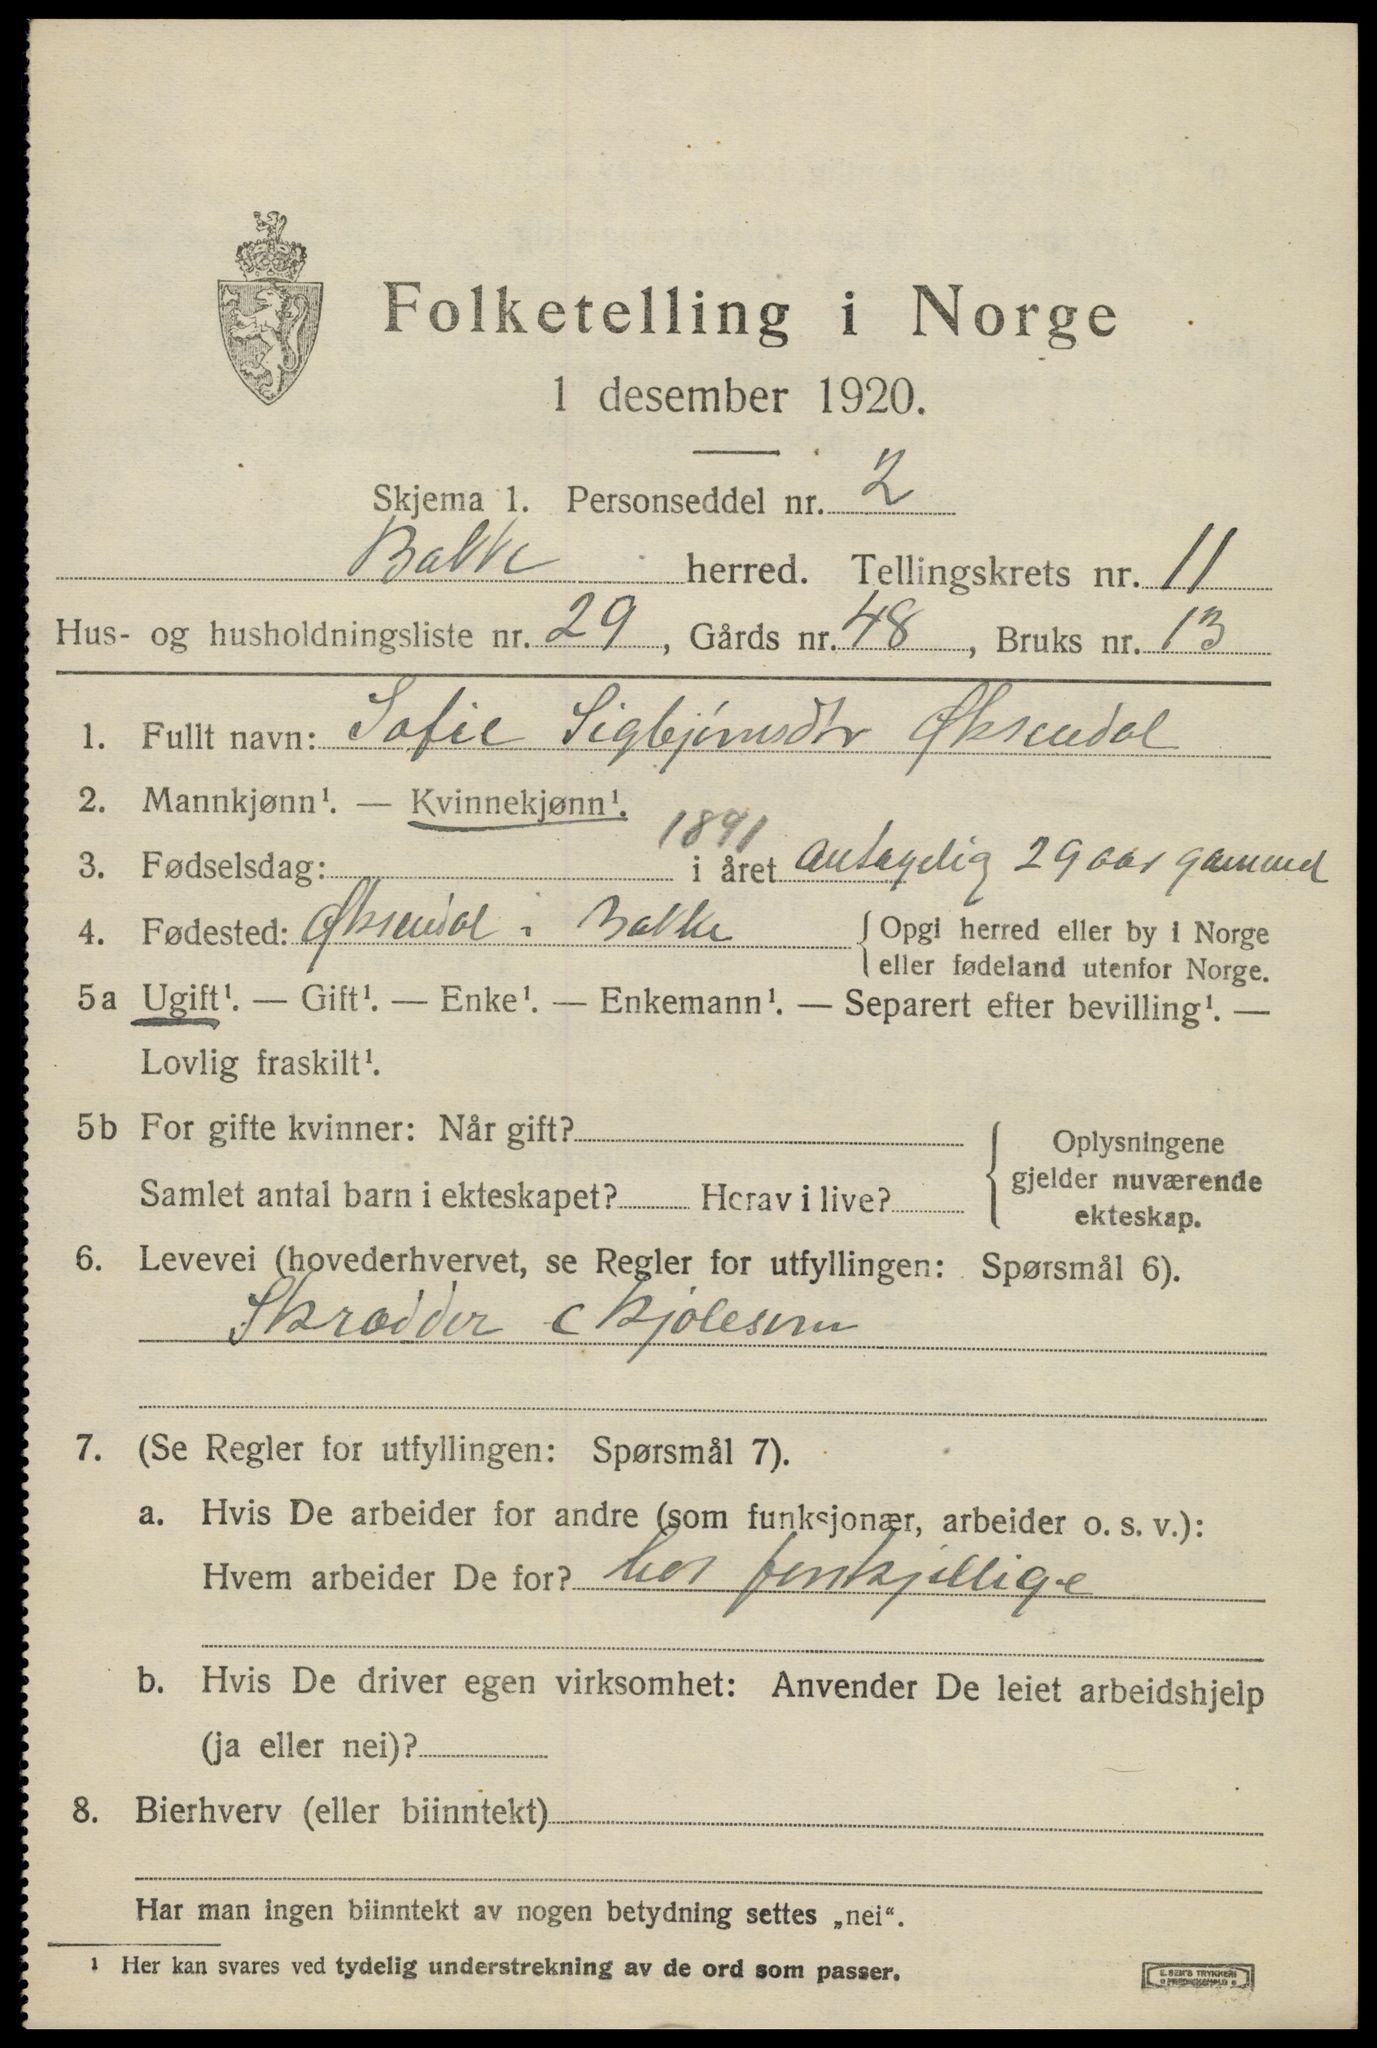 Folketelling i Norge
1 desember 1920.
Skjema 1. Personseddel nr. 2
Bakke herred. Tellingskrets nr. 11
Hus- og husholdningsliste nr. 29, Gårds nr. 48, Bruks nr. 13
1. Fullt navn: Sofie Sigbjørnsdtr Øksendal
2. Mannkjønn¹. — Kvinnekjønn¹.
1891
3. Fødselsdag: i året antagelig 29 aar gammel
4. Fødested: Øksendal i Bakke {Opgi herred eller by i Norge
eller fødeland utenfor Norge.
5a Ugift¹. — Gift¹. — Enke¹. — Enkemann¹. — Separert efter bevilling¹. —
Lovlig fraskilt¹.
5b For gifte kvinner: Når gift? Oplysningene
gjelder nuværende
Samlet antal barn i ekteskapet? Herav i live?
ekteskap.
6. Levevei (hovederhvervet, se Regler for utfyllingen: Spørsmål 6).
Skrædder kjolesøm
7. (Se Regler for utfyllingen: Spørsmål 7).
a. Hvis De arbeider for andre (som funksjonær, arbeider o. s. v.):
Hvem arbeider De for? hos forskjellige
b. Hvis De driver egen virksomhet: Anvender De leiet arbeidshjelp
(ja eller nei)?
8. Bierhverv (eller biinntekt)
Har man ingen biinntekt av nogen betydning settes „nei“.
¹ Her kan svares ved tydelig understrekning av de ord som passer.
E. SEM'S TRYKKERI
FREDRIKSHALD